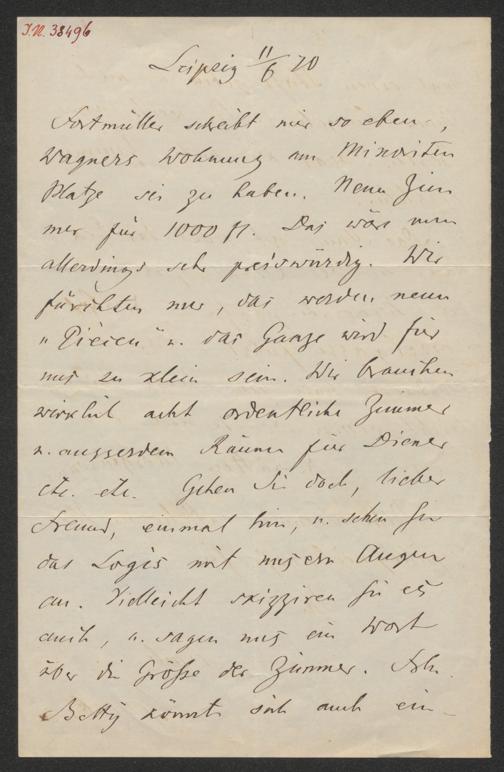 J.N. 38496
Leipzig 11/6 70
Fortmüller schreibt mir so eben,
Wagners Wohnung am Minoriten
Platze sei zu haben. Neun Zim
mer für 1000 fl. Das wäre nun
allerdings sehr preiswürdig. Wir
fürchten nur, das werden neun
"Piècen" u. das Ganze wird für
uns zu klein sein. Wir brauchen
wirklich acht ordentliche Zimmer
u. ausserdem Räume für Diener
etc. etc. Gehen Sie doch, lieber
Freund, einmal hin, u. sehen Sie
das Logis mit unsern Augen
an. Vielleicht skizziren Sie es
auch, u. sagen uns ein Wort
über die Größe der Zimmer. Frln.
Betty könnte sich auch ein-